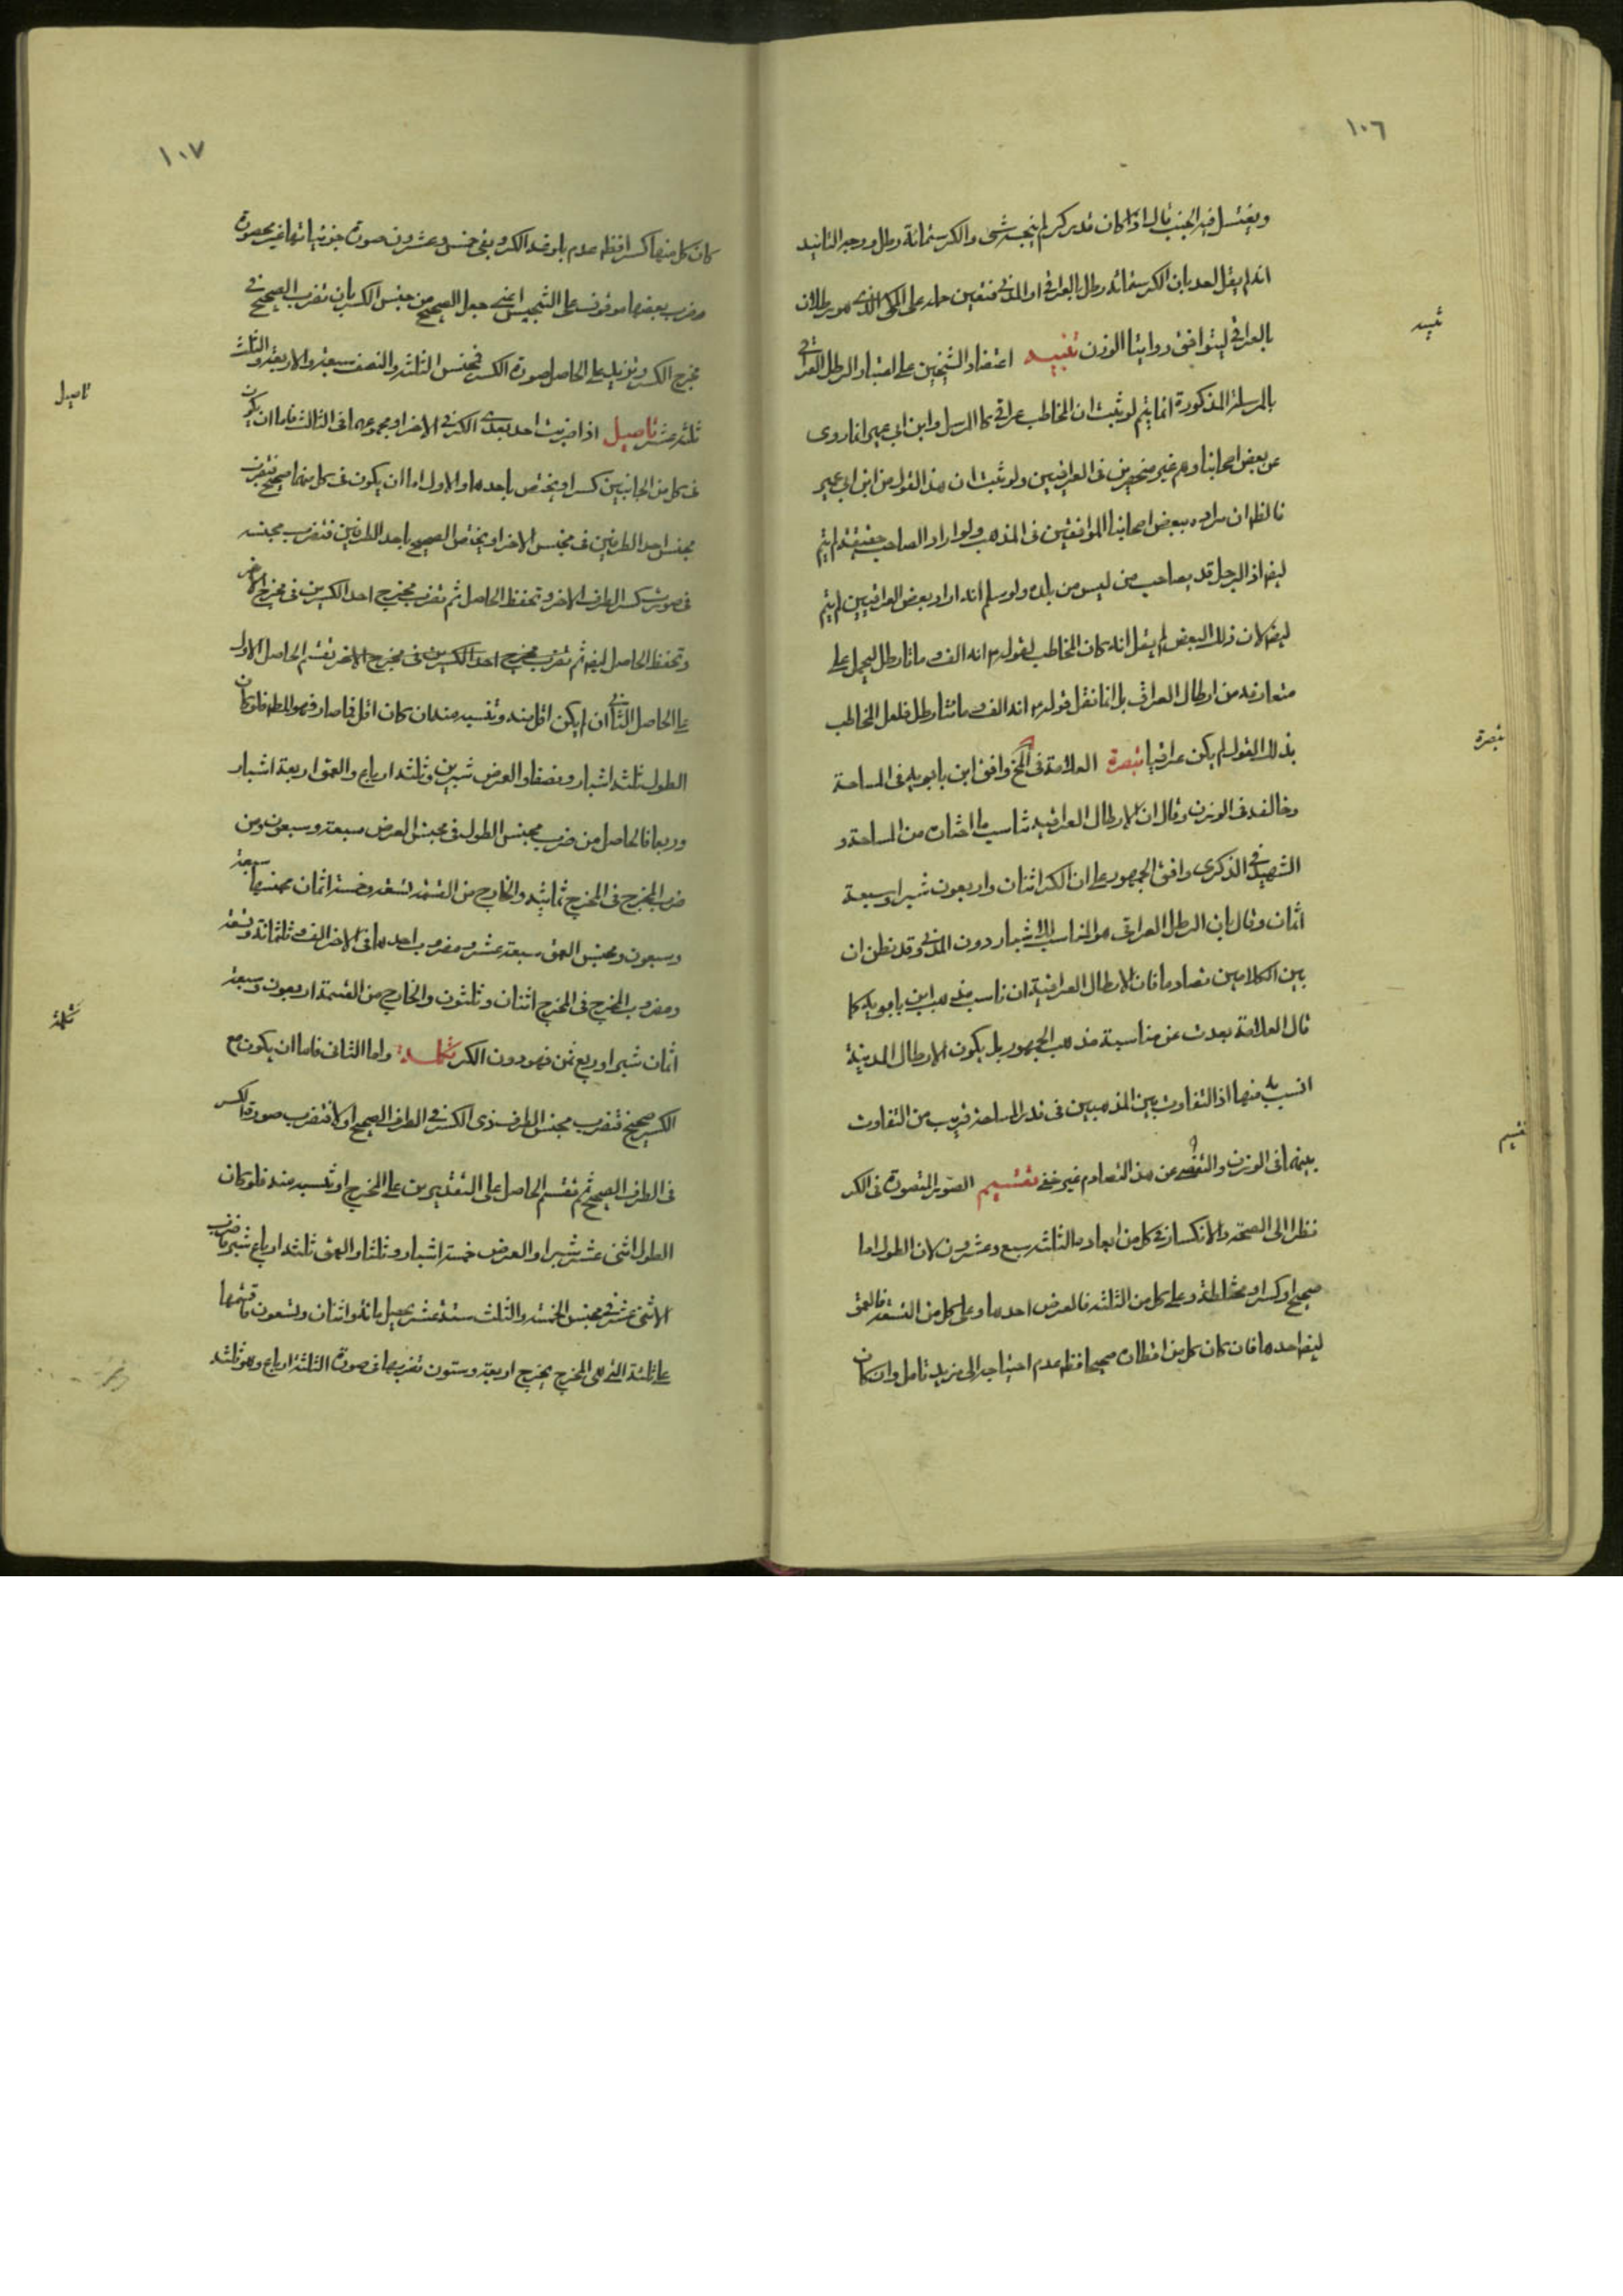 ١٠٦
ويغتسل فيه الجنب قال اذا كان قدر كر لم ينجسه شئ والكر ستمائة رطل ووجه التائيد
انه لم يقل احد بان الكر ستمائه رطل بالعراقي او المدني فتعين حمله على المكي الذي هو رطلان
بالعراقي ليتوافق روايتا الوزن تنبيه اعتضاد الشيخين على اعتبار الرطل العراقي
تنبيه
بالمرسلة المذكورة انما يتم لو ثبت ان المخاطب عراقي كالمرسل وابن ابي عمير انما روى
عن بعض اصحابنا وهم غير منحصرين في العراقيين ولو ثبت ان هذا القول من ابن ابي عمير
فالظ ان مراده ببعض اصحابنا الموافقين في المذهب ولو اراد الصاحب حقيقة لم يتم
ايضا اذ الرجل قد يصاحب من ليس من بلده ولو سلم انه اراد بعض العراقيين لم يتم
ايضا لان ذلك البعض لم يقل انه كان المخاطب لقوله انه الف ومائتا رطل ليحمل على
متعارفه من ارطال العراق بل انما نقل قوله انه الف ومائتا رطل فلعل المخاطب
بذلك القول لم يكن عراقيا تبصرة العلامة في وافق ابن بابويه في المساحة
تبصرة
وخالفه في الوزن وقال ان الارطال العراقيه تناسب ما اختاره من المساحة و
الشهيد في الذكرى وافق الجمهور على ان الكر اثنان واربعون شبرا وسبعة
اثمان وقال بان الرطل العراقي هو المناسب للاشبار دون المدني وقد نظن ان
بين الكلامين تصادما فان الارطال العراقية ان ناسب مذهب ابن بابويه كما
قال العلامة بعدت عن مناسبة مذهب الجمهور بل يكون الارطال المدينة
انسب به منها اذ التفاوت بين المذهبين في قدر المساحة قريب من التفاوت
بينهما في الوزن والتفصي عن هذا التصادم غير خفي تقسيم الصور المتصورة في الكر
تقسيم
نظرا الى الصحة والانكسار في كل من ابعاده الثلثه سبع وعشرون لان الطول اما
صحيح او كسر او مختلطة وعلى كل من الثلثه فالعرض احدها وعلى كل من التسعة فالعمق
ايضا احدها فان كان كل من اقطاره صحيحا فظ عدم احتياجه الى مزيد تامل وان كان
١٠٧
كان كل منها كسرا فظ عدم بلوغه الكر وبقى خمس وعشرون صورة جزئياتها غير محصورة
وضرب بعضها موقوف على التجنيس اعني جعل الصحيح من جنس الكسر بان تضرب الصحيح في
مخرج الكسر وتزيد على الحاصل صورة الكسر فمجنس الثلثه والنصف سبعة والاربعة والثلث
ثلثه عشر تاصيل اذا ضربت احد بعدى الكر في الاخر او مجموعهما في الثالث فاما ان يكون
تاصيل
في كل من الجانبين كسر او يختص باحدهما والاول اما ان يكون في كل منهما صحيح فتضرب
مجنس احد الطرفين في مجنس الاخر او يختص الصحيح باحد الطرفين فتضرب مجنسه
في صورت كسر الطرف الاخر وتحفظ الحاصل ثم تضرب مخرج احد الكسرين في مخرج الاخر
وتحفظ الحاصل ايضا ثم تضرب مخرج احد الكسرين في مخرج الاخر تقسم الحاصل الاول
على الحاصل الثاني ان لم يكن اقل منه وتنسبه منه ان كان اقل فما صار فهو المط فلو كان
الطول ثلثه اشبار ونصفا والعرض شبرين وثلثه ارباع والعمق اربعة اشبار
وربعا فالحاصل من ضرب مجنس الطول في مجنس العرض سبعة وسبعون ومن
ضرب المخرج في المخرج ثمانيه والخارج من القسمه تسعه وخمسة اثمان مجنسها سبعة
وسبعون ومجنس العمق سبعة عشر ومضروب احدهما في الاخر الف وثلثمائة وتسعه
ومضروب المخرج في المخرج اثنان وثلثون والخارج من القسمة اربعون وسبعة
اثمان شبرا وربع ثمن فهو دون الكر تكملة واما الثاني فاما ان يكون مع
تكملة
الكسر صحيح فتضرب مجنس الطرف ذي الكسر في الطرف الصحيح او لا فتضرب صورة الكسر
في الطرف الصحيح ثم تقسم الحاصل على التقديرين على المخرج او تنسبه منه فلو كان
الطول اثنى عشر شبرا والعرض خمسة اشبار وثلثا والعمق ثلثه ارباع شبر فاضرب
الاثني عشر في مجنس الخمسة والثلث ستة عشر يحصل مائة واثنان وتسعون فاقسمها
على ثلثة التي هي المخرج يخرج اربعة وستون تضربها في صورة الثلثة ارباع وهو ثلثه